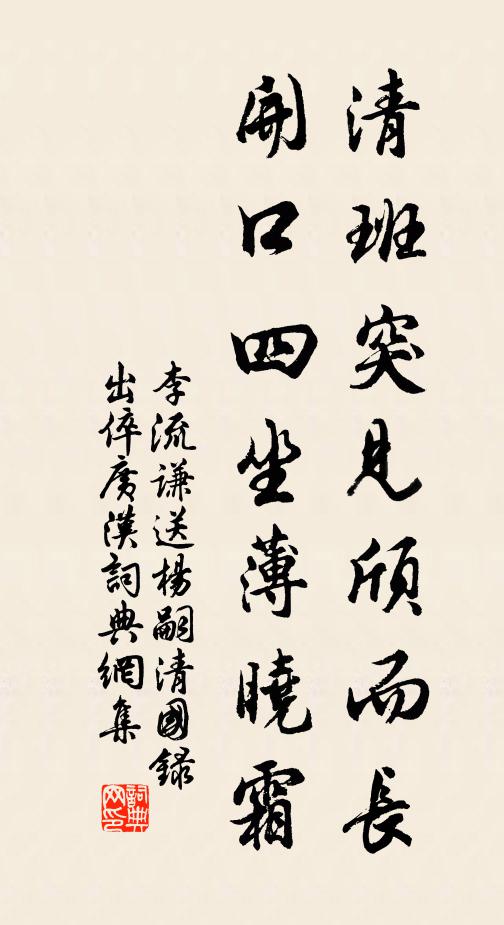 清班突見頎而長
開口四坐薄曉霜
李流謙送楊嗣清國錄
出倅廣漢詞典網集
詞典網印